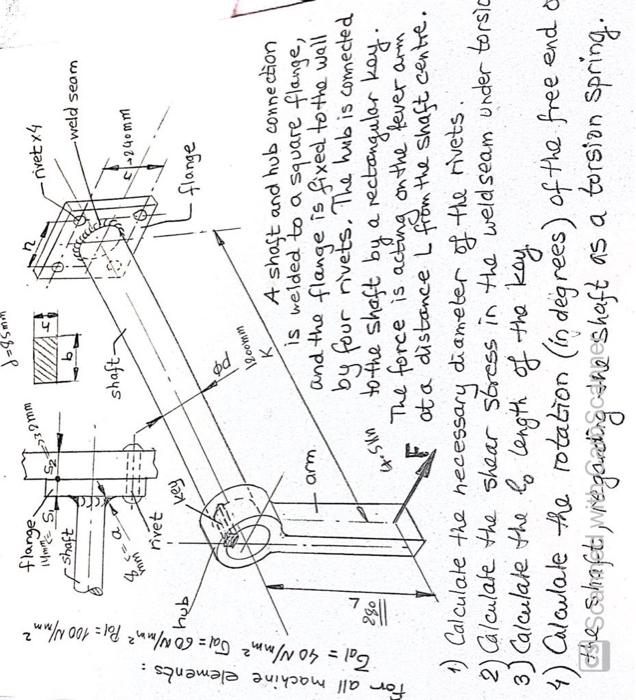 d=85mm
flange
14mm=S₁
S₂=32mm
h
b
rivet x4
weld seam
n
r=240mm
flange
shaft
shaft
a
5mm
rivet
key
Ød
1200mm
K
hub
arm
4.5kN
F
L
280
for all machine elements:
τal = 40 N/mm² σal = 60 N/mm² Pal = 100 N/mm²
A shaft and hub connection
is welded to a square flange,
and the flange is fixed to the wall
by four rivets. The hub is connected
to the shaft by a rectangular key.
The force is acting on the lever arm
at a distance L from the shaft centre.
1) Calculate the necessary diameter of the rivets.
2) Calculate the shear stress in the weld seam under torsio
3) Calculate the lo length of the key
4) Calculate the rotation (in degrees) of the free end o
the shaft, regarding the shaft as a torsion spring.
CS Scanned with CamScanner